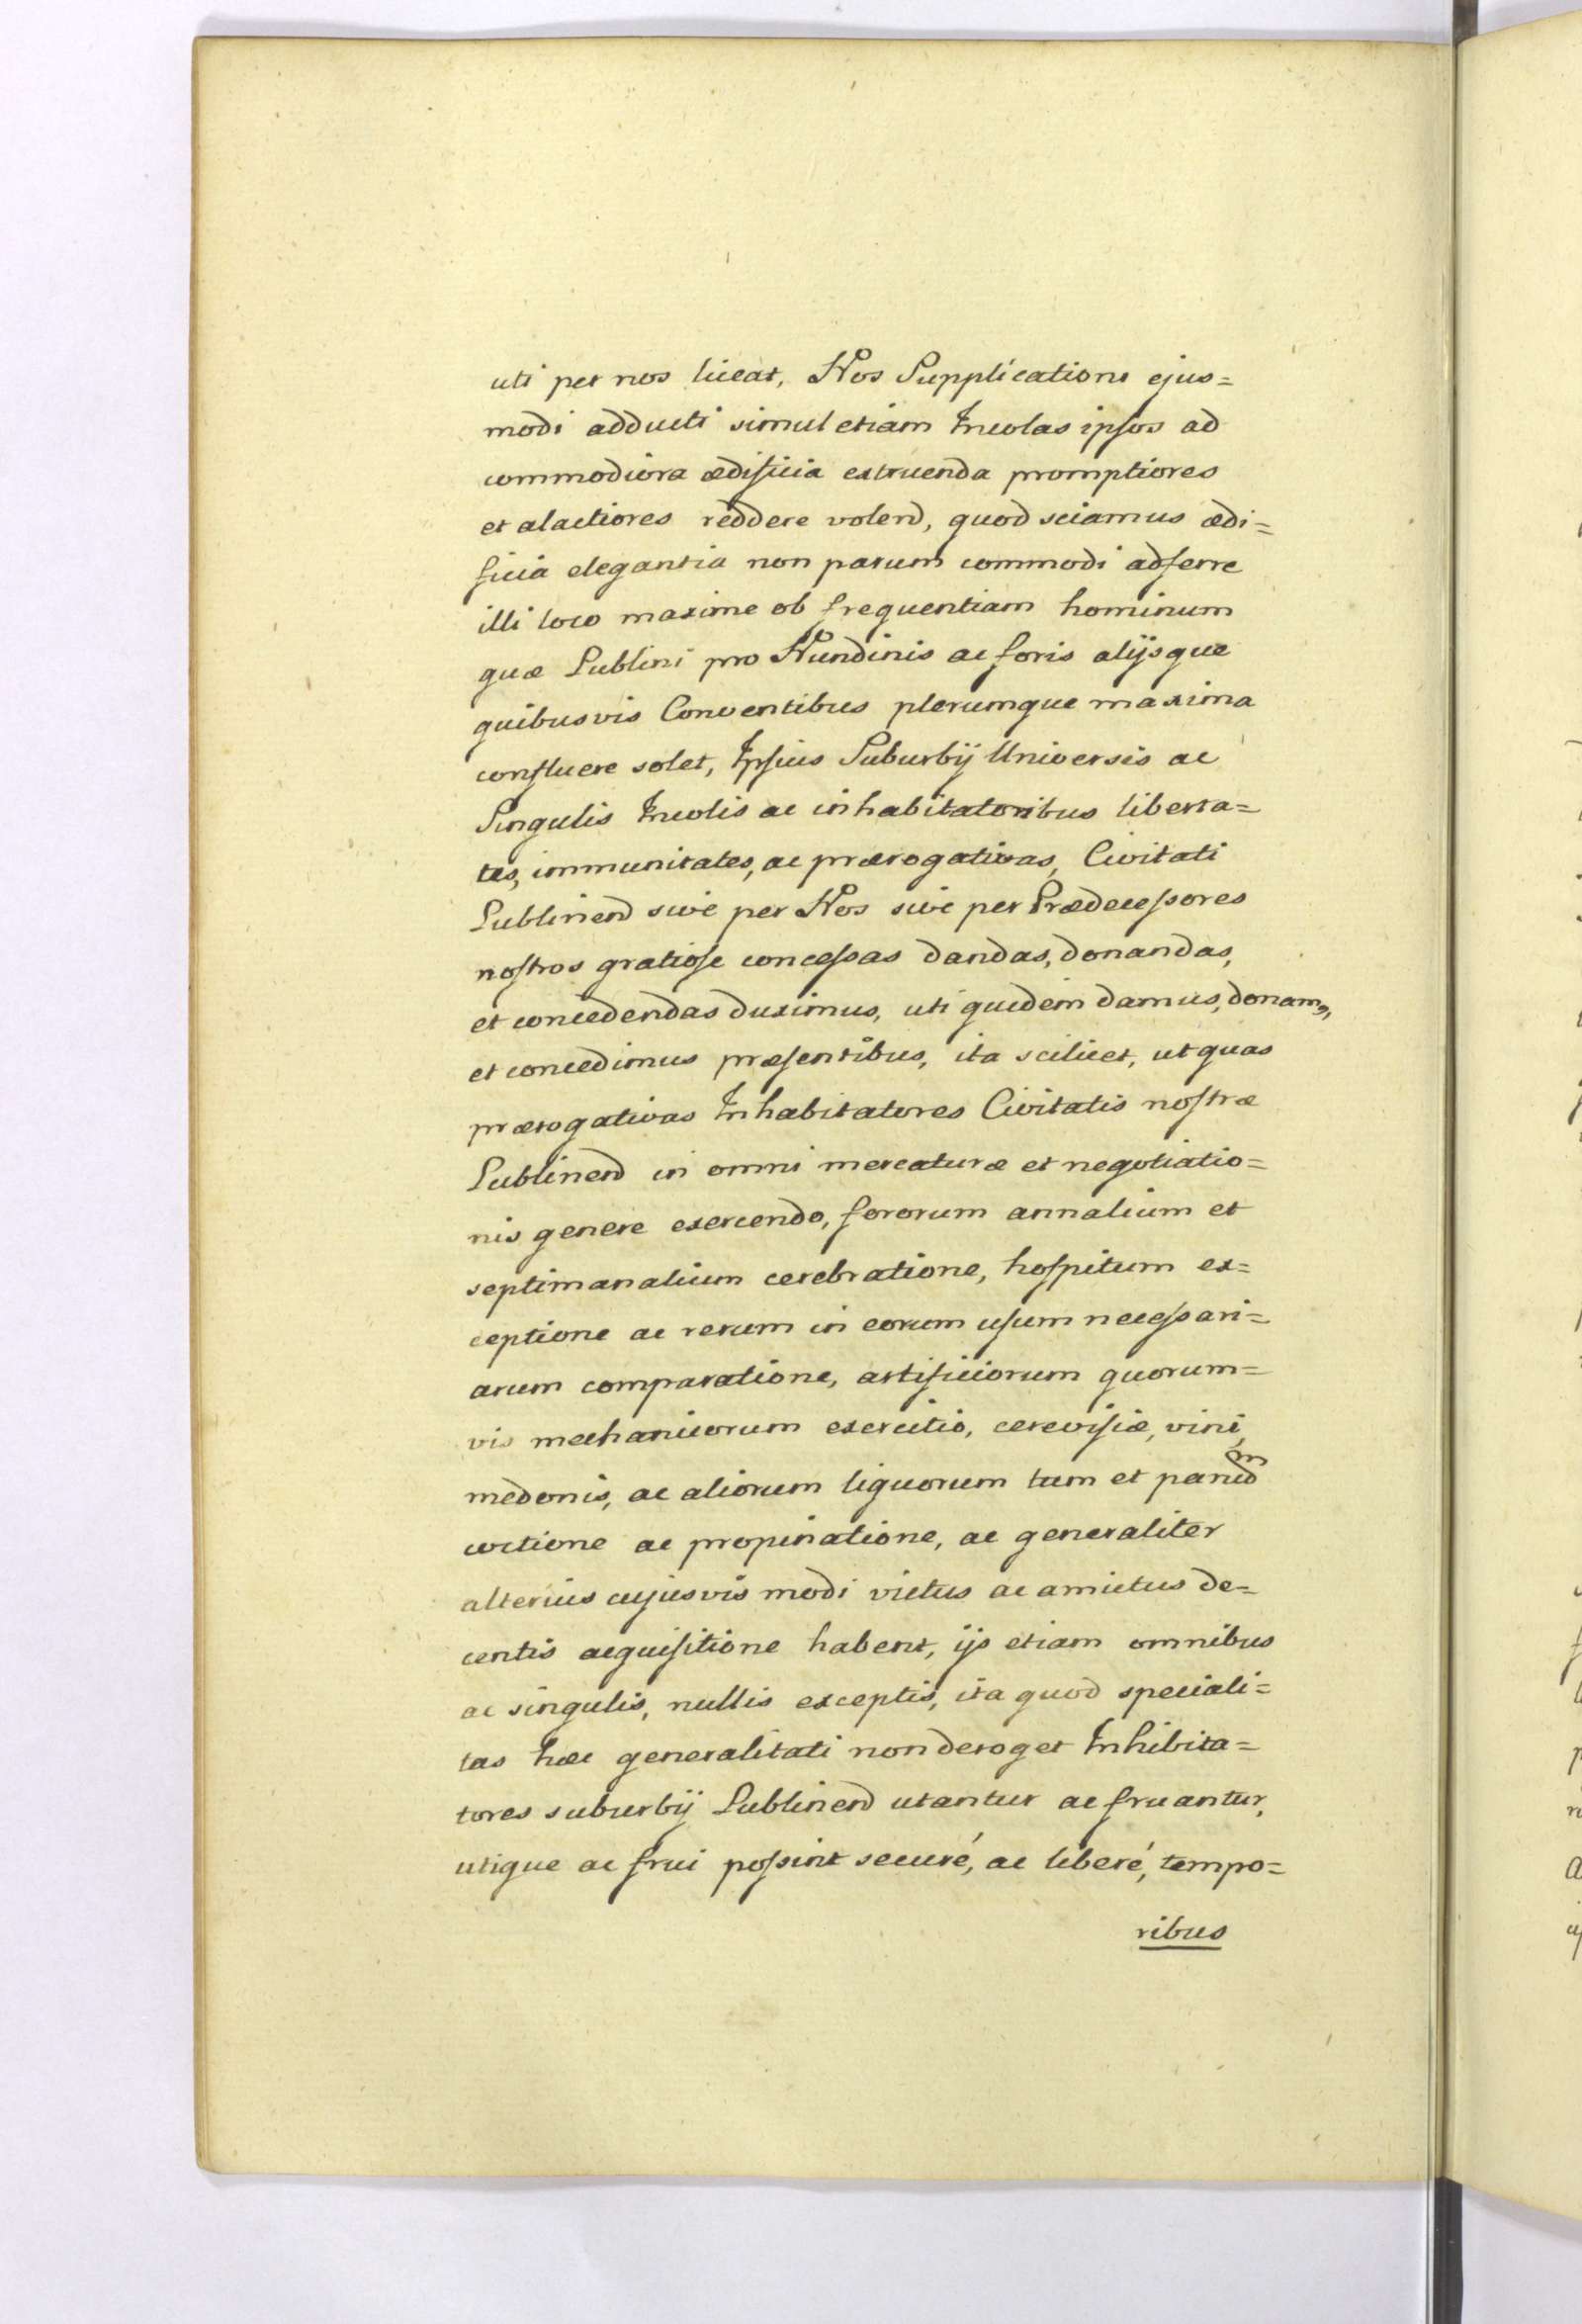 uti per nos liceat, Nos Supplicationi ejus=
modi adducti simul etiam Incolas ipsos ad
commodiora ædificia extruenda promptiores
et alactiores reddere volend, quod sciamus ædi=
ficia elegantia non parum commodi adferre
illi loco maxime ob frequentiam hominum
quæ Lublini pro Nundinis ac foris alijsque
quibusvis Conventibus plerumque maxima
confluere solet, Ipsius Suburbij Universis ac
Singulis Incolis ac inhabitatoribus liberta=
tes, immunitates, ac prærogativas, Civitati
Lublinend sive per Nos sive per Prædecessores
nostros gratiose concessas dandas, donandas,
et concedendas duximus, uti quidem damus, donam9,
et concedimus præsentibus, ita scilicet, ut quas
prærogativas Inhabitatores Civitatis nostræ
Lublinend in omni mercaturæ et negotiatio=
nis genere exercendo, fororum annalium et
septimanalium cerebratione, hospitum ex=
ceptione ac rerum in eorum usum necessari=
arum comparatione, artificiorum quorum=
vis mechanicorum exercitio, cerevisiæ, vini,
medonis, ac aliorum liquorum tum et
coctione ac propinatione, ac generaliter
alterius cujusvis modi victus ac amictus de=
centis acquisitione habent, ijs etiam omnibus
ac singulis, nullis exceptis, ita quod speciali=
tas hæc generalitati non deroget Inhibita=
tores suburbij Lublinend utantur ac fruantur,
utique ac frui possint securé, ac liberé, tempo=
ribus